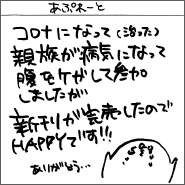 あぷれーと
コロナになって(治った)
親族が病気になって
腹をケガして参加
しましたが
新刊が完売したので
HAPPYです!!
ありがとう…